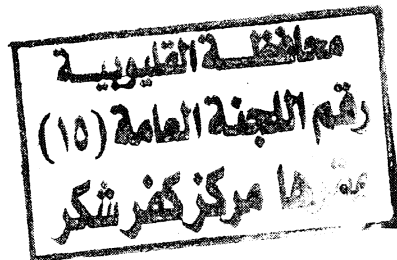 محافظة القليوبية
رقم اللجنة العامة (١٥)
مقرها مركز كفر شكر